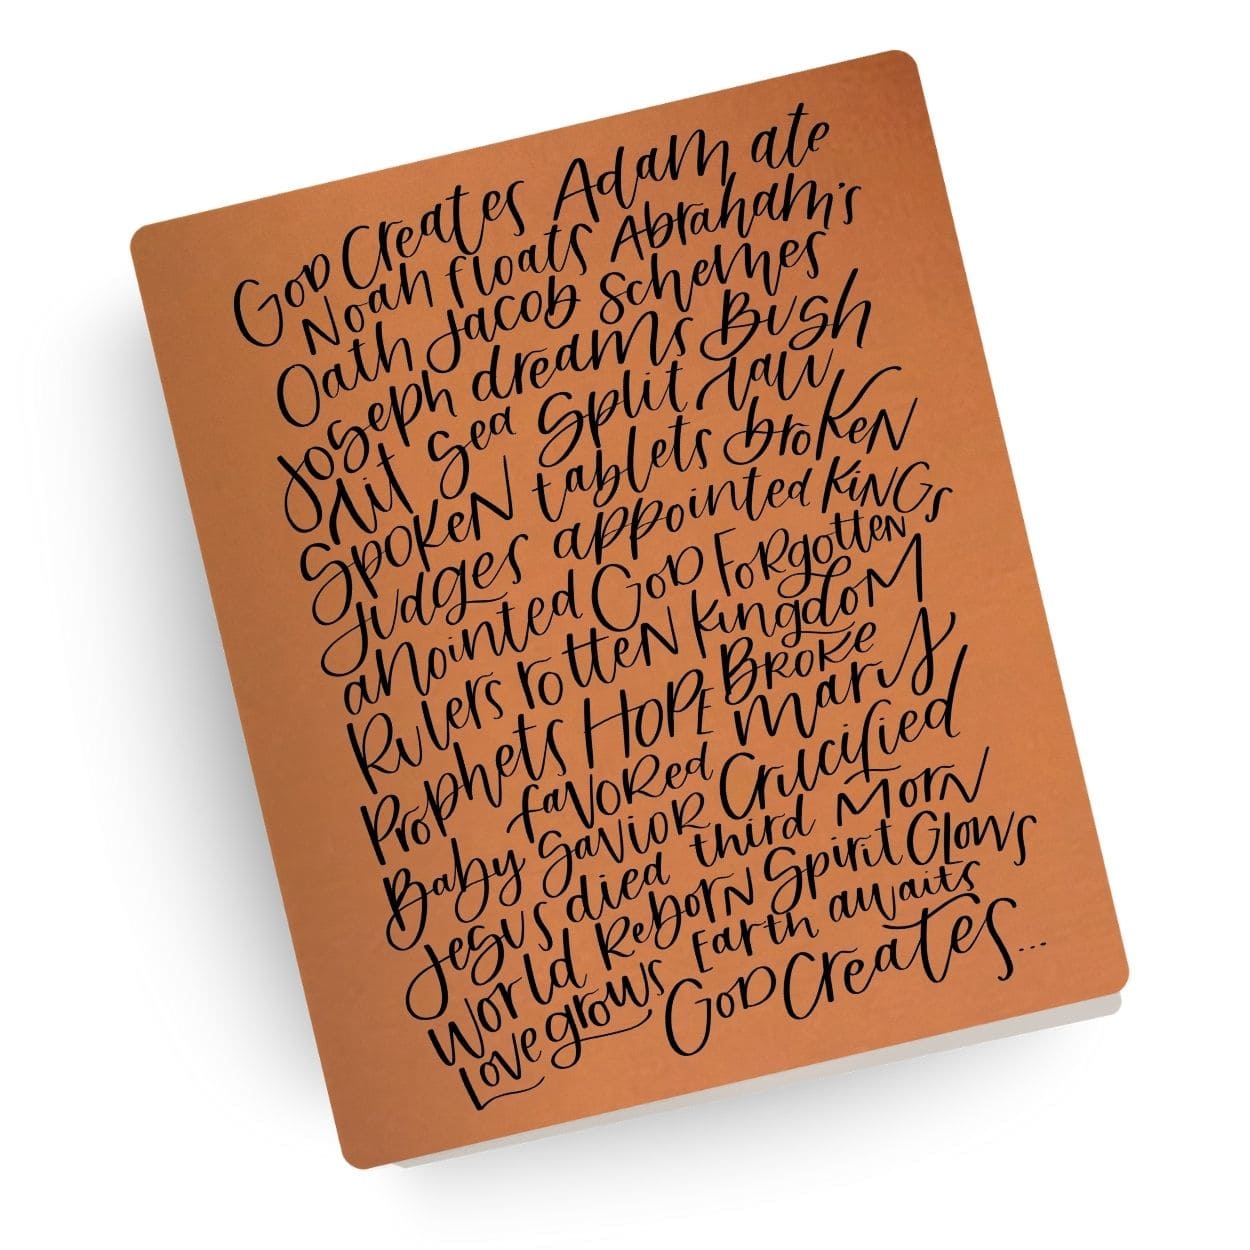 God Creates Adam ate
Noah floats Abraham's
Oath Jacob Schemes
Joseph dreams Bush
Lit Sea Split Law
Spoken tablets broken
Judges appointed Kings
anointed God Forgotten
Rulers rotten Kingdom
Prophets HOPE Broke
favored Mary
Baby Savior Crucified
Jesus died third Morn
World Reborn Spirit Glows
Love grows Earth awaits
God Creates...